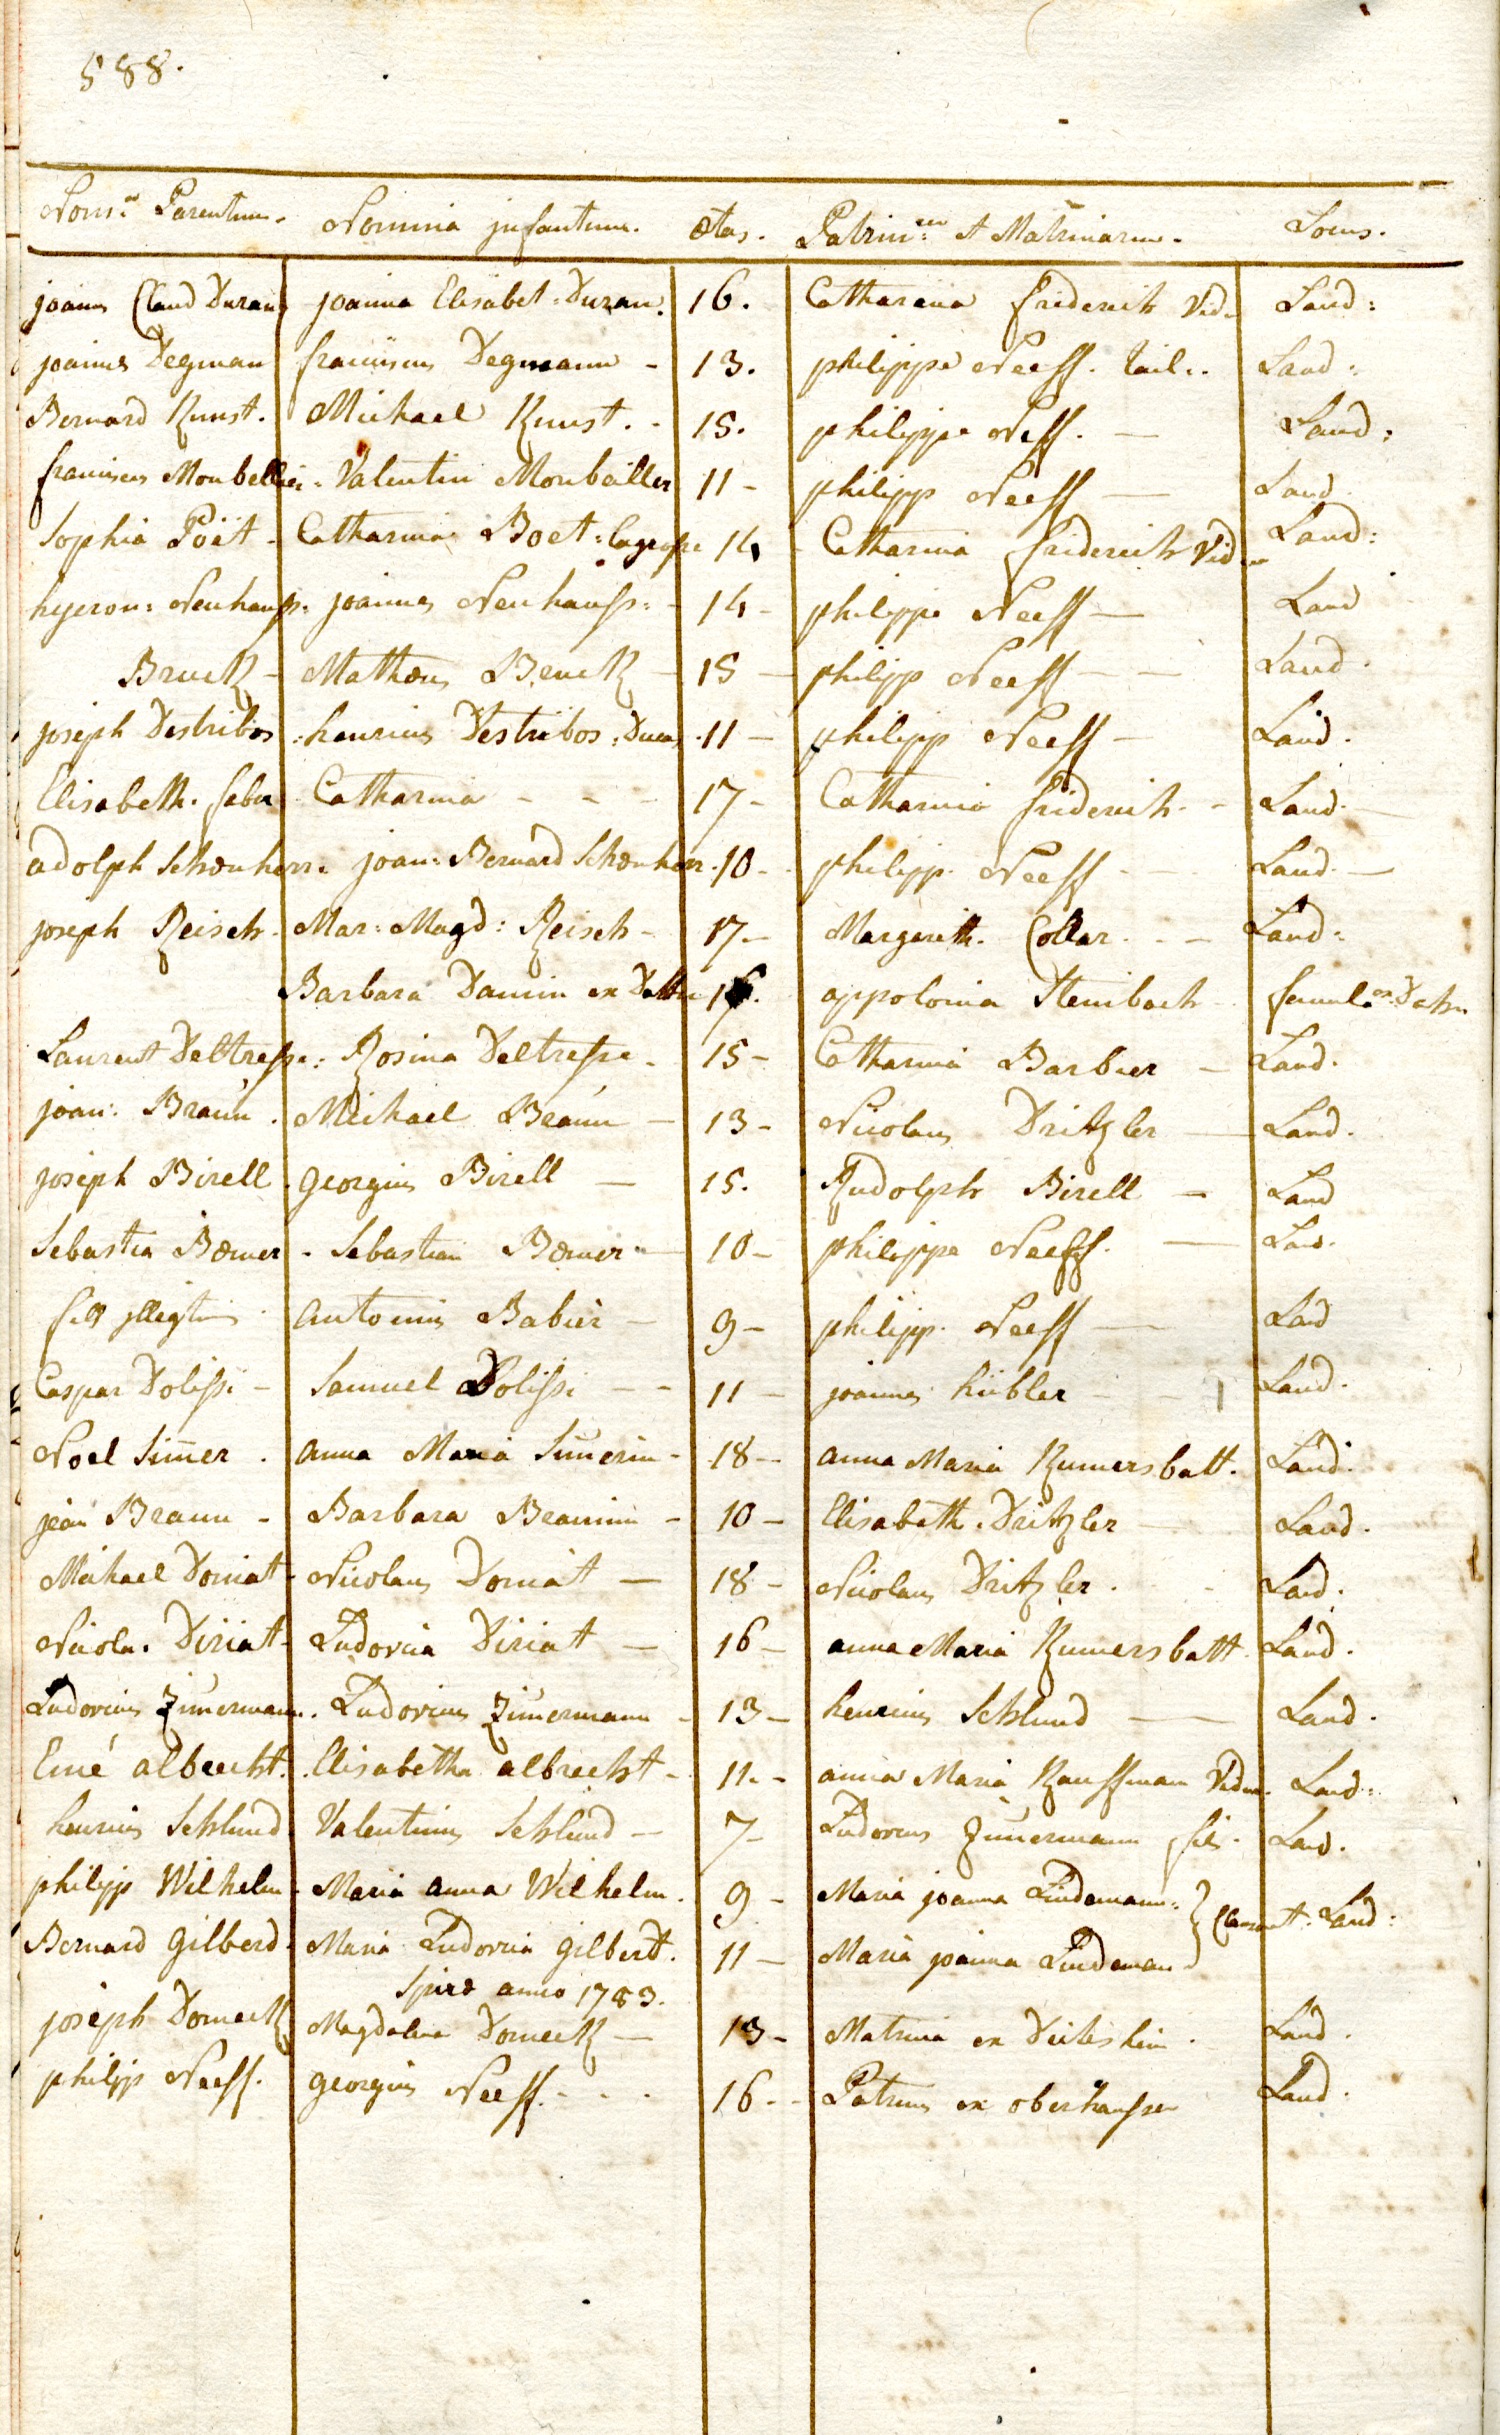 588.
Nom:a Parentum. Nomina jnfantum. ætas. Patrin:um et Matrinarum. Locus.
joannes Claud Duran joanna Elisabet: Duran. 16. Catharina friderich Vid. Land:
joannes Degman franciscus Degmann - 13. philippe Neeff. tail.. Land:
Bernard Kunst. Michael Kunst. - 15. philippe Neff. - Land:
franciscus Monbellier. Valentin Monbeiller 11 - philipp Neeff - Land.
Sophia Poët - Catharina Boet: 14 - Catharina friderich Vid. Land:
hyeron: Neuhauss: joannes Neuhauss: - 14 - philippe Neeff - Land
Bruck - Mathæus Bruck - 15 - philipp Neeff - - Land.
joseph Destribos :henricus Destribos: 11 - philipp Neeff - Land.
Elisabeth. faber Catharina - - - 17 - Catharina friderich - - Land. -
adolph Schænherr. joan: Bernard Schænherr. 10 - philipp. Neeff - - Land. -
joseph Reisch. Mar: Magd: Reisch - 17. - Margareth. Collar. - - Land:
Barbara Damin ex appolonia Steinbach famula ex Dahn
Laurent Deltresse: Rosina Deltresse - 15 - Catharina Barbier - Land.
joan: Braun. Michael Braun - 13 - Nicolaus Dritzler - Land.
joseph Birell. georgius Birell - 15. Rudolph Birell - Land
Sebastia Bæmer - Sebastian Bæmer - 10 - philippe Neeff. - Land.
antonius Babier - 9 - philipp. Neeff - Land
Caspar Dolissi - Samuel Dolissi - - 11 - joannes hübler - Land.
Noel Sim̄er. anna Maria Sim̄erin - 18 - anna Maria Kumersbatt. Land.
jean Braun - Barbara Braunin - 10 - Elisabeth. Dritzler - Land.
Michael Doniat - Nicolaus Doniat - 18 - Nicolaus Dritzler. - Land.
Nicola. Diriat - Ludovica Diriat - 16 - anna Maria Kumersbatt. Land.
Ludovicus Zim̄ermann. Ludovicus Zim̄ermann - 13 - henricus Schlund - Land.
Emé albrecht. Elisabetha albrecht - 11. - anna Maria Kauffman Vidua. Land:
henricus Schlund Valentinus Schlund - 7 - Ludovicus Zim̄ermann fil. Land.
philipp Wilhelm - Maria anna Wilhelm. 9 - Maria joanna Lindemann: } Land:
Bernard Gilberd. Maria Ludovica gilbert. 11 - Maria joanna Lindeman
Spiræ anno 1783.
joseph Domeck Magdalena Domeck - 13 - Matrina ex Land.
philipp Neeff. georgius Neeff. - - - 16 - - Patrinus ex oberhausen Land.